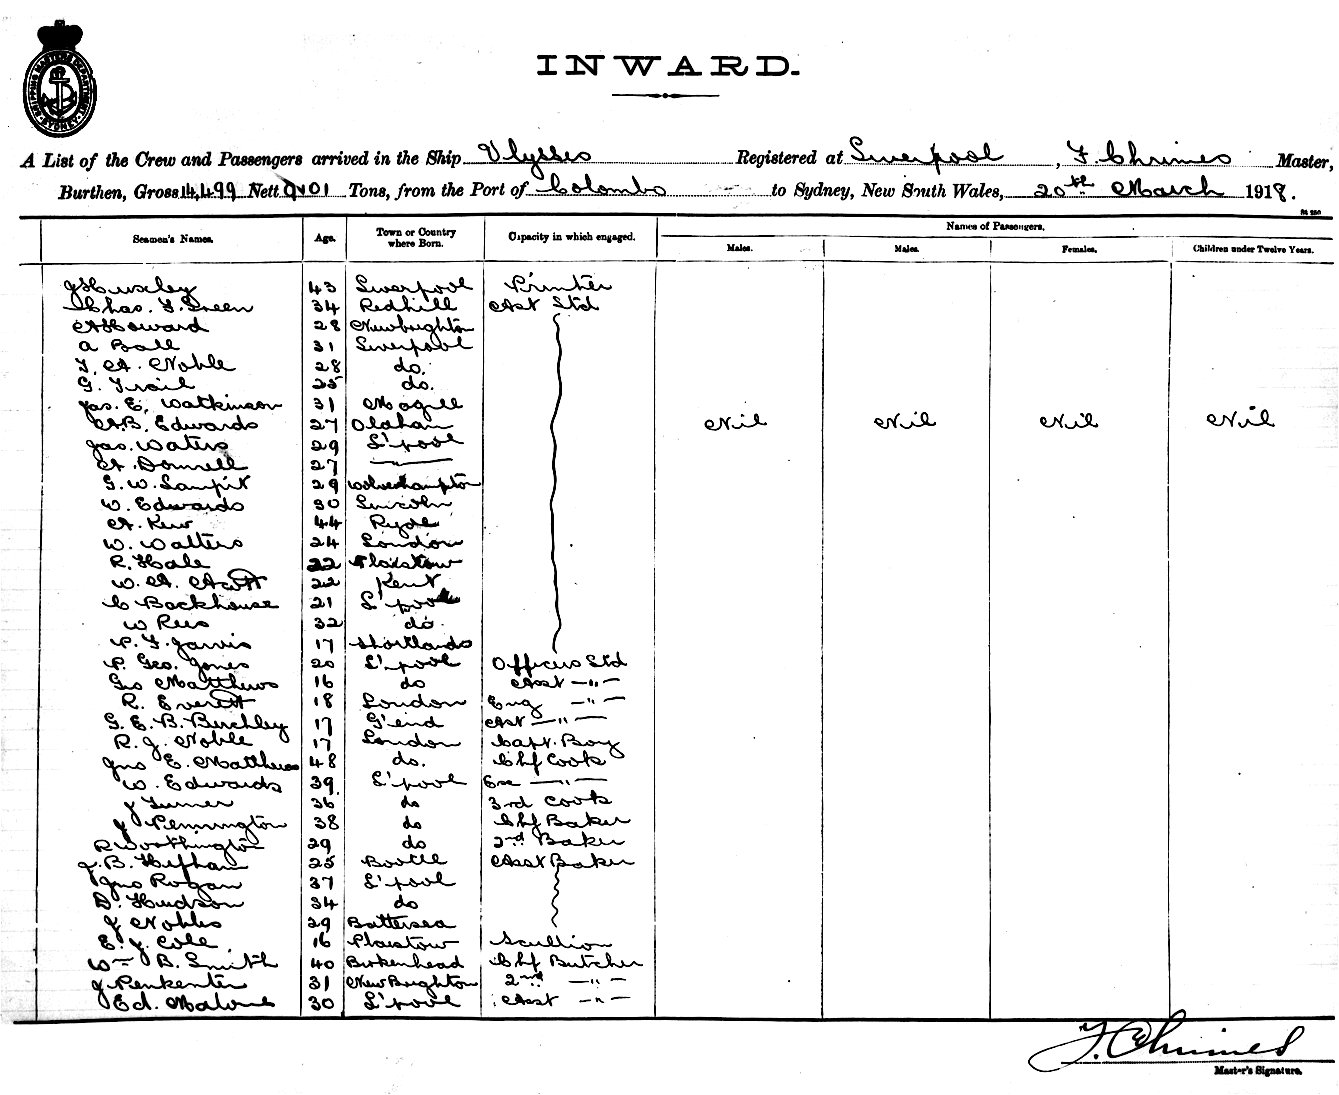 SHIPPING MASTER'S DEPARTMENT SYDNEY
INWARD.
A List of the Crew and Passengers arrived in the Ship Ulysses Registered at Liverpool, F. Chrimes Master,
Burthen, Gross 14,499 Nett Tons, from the Port of Colombo to Sydney, New South Wales, 20th March 1918.
Names of Passengers.
Seamen's Names. Age. Town or Country where Born. Capacity in which engaged. Males. Males. Females. Children under Twelve Years.
J Huxley 43 Liverpool Printer
Chas. F. Green 34 Redhill Asst Std
A Howard 28 New brighton
A Ball 31 Liverpool
F. A. Noble 28 do.
G. Trail 25 do.
Jas. E. Watkinson 31
A.B. Edwards 27 Oldham Nil Nil Nil Nil
Jas. Waters 29 L'pool
A. Donnell 27 —"—
G. W. 29 Wolverhampton
W. Edwards 30 Lincoln
A. Kew 44 Ryde
W. Walters 24 London
R. Hale 22 Plaistow
W. A. 22 Kent
C Backhouse 21 L'pool
W Rees 32 do
P. F. Jarvis 17 Shortlands
P. Geo. Jones 20 L'pool Officers Std
Geo Matthews 16 do Asst —"—
R. Everett 18 London Eng —"—
G. E. B. Birchley 17 G'end Asst —"—
R. J. Noble 17 London Capt. Boy
Jno E. Matthews 48 do. Chf Cook
W. Edwards 39 L'pool —"—
J Turner 36 do 3rd Cook
J Pennington 38 do Chf Baker
R Worthington 29 do 2nd Baker
J. B. Hepham 25 Bootle Asst Baker
Jno Rogan 37 L'pool
D. Hudson 34 do
J Nobles 29 Battersea
E. J. Cole 16 Plaistow Scullion
Wm B. Smith 40 Birkenhead Chf Butcher
J Penkenter 31 New Brighton 2nd —"—
Ed. Malone 30 L'pool Asst —"—
F. Chrimes
Master's Signature.